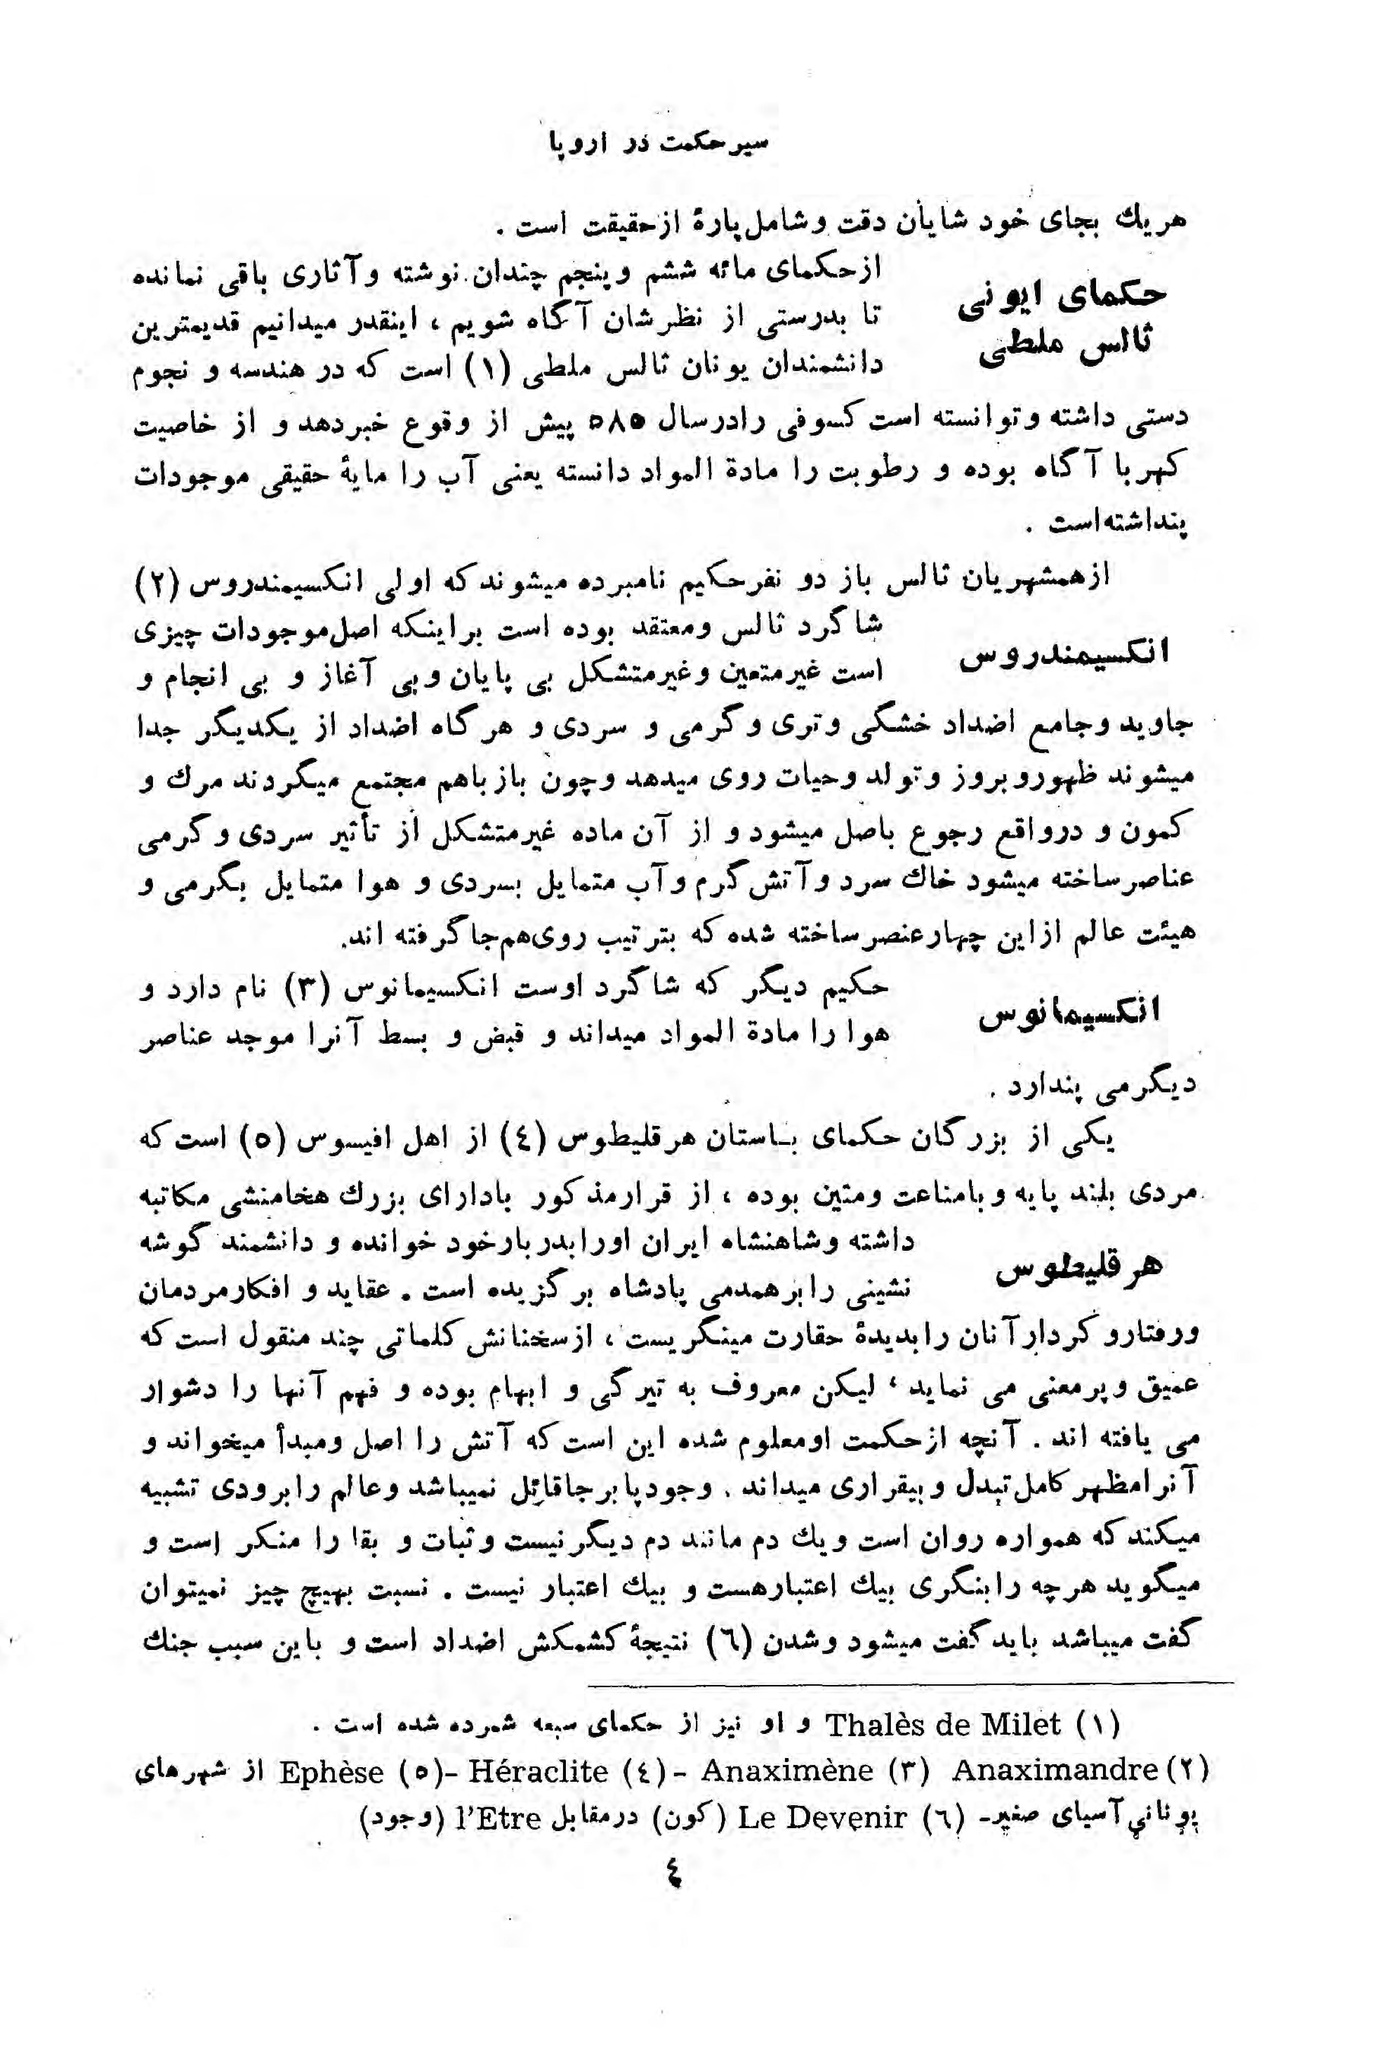 سیر حکمت در اروپا
هریك بجای خود شایان دقت وشامل پارهٔ ازحقیقت است .
حکمای ایونی
ثالس ملطی
ازحکمای مائه ششم وپنجم چندان نوشته وآثاری باقی نمانده
تا بدرستی از نظرشان آگاه شویم ، اینقدر میدانیم قدیمترین
دانشمندان یونان ثالس ملطی (۱) است که در هندسه و نجوم
دستی داشته وتوانسته است کسوفی رادرسال ۵۸۵ پیش از وقوع خبردهد و از خاصیت
کهربا آگاه بوده و رطوبت را مادة المواد دانسته یعنی آب را مایهٔ حقیقی موجودات
پنداشته‌است .
ازهمشهریان ثالس باز دو نفرحکیم نامبرده میشوند که اولی انکسیمندروس (۲)
انکسیمندروس
شاگرد ثالس ومعتقد بوده است براینکه اصل‌موجودات چیزی
است غیرمتعین وغیرمتشکل بی پایان وبی آغاز و بی انجام و
جاوید وجامع اضداد خشگی وتری وگرمی و سردی و هرگاه اضداد از یکدیگر جدا
میشوند ظهوروبروز وتولد وحیات روی میدهد وچون بازباهم مجتمع میگردند مرك و
کمون و درواقع رجوع باصل میشود و از آن ماده غیرمتشکل از تأثیر سردی وگرمی
عناصرساخته میشود خاك سرد وآتش گرم وآب متمایل بسردی و هوا متمایل بگرمی و
هیئت عالم ازاین چهارعنصرساخته شده که بترتیب روی‌هم‌جاگرفته اند.
انکسیمانوس
حکیم دیگر که شاگرد اوست انکسیمانوس (۳) نام دارد و
هوا را مادة المواد میداند و قبض و بسط آنرا موجد عناصر
دیگرمی پندارد .
یکی از بزرگان حکمای باستان هرقلیطوس (٤) از اهل افیسوس (٥) است که
مردی بلند پایه وبامناعت ومتین بوده ، از قرارمذکور بادارای بزرك هخامنشی مکاتبه
هرقلیطوس
داشته وشاهنشاه ایران اورابدربارخود خوانده و دانشمند گوشه
نشینی رابرهمدمی پادشاه برگزیده است . عقاید و افکارمردمان
ورفتاروکردارآنان رابدیدهٔ حقارت مینگریست ، ازسخنانش کلماتی چند منقول است که
عمیق وپرمعنی می نماید ، لیکن معروف به تیرگی و ابهام بوده و فهم آنها را دشوار
می یافته اند . آنچه ازحکمت اومعلوم شده این است که آتش را اصل ومبدأ میخواند و
آنرامظهرکامل تبدل وبیقراری میداند . وجودپابرجاقائل نمیباشد وعالم رابرودی تشبیه
میکند که همواره روان است ویك دم مانند دم دیگرنیست وثبات و بقا را منکر است و
میگوید هرچه رابنگری بیك اعتبارهست و بیك اعتبار نیست . نسبت بهیچ چیز نمیتوان
گفت میباشد باید گفت میشود وشدن (٦) نتیجهٔ کشمکش اضداد است و باین سبب جنك
(۱) Thalès de Milet و او نیز از حکمای سبعه شمرده شده است .
(۲) Anaximandre (۳) Anaximène - (٤) Héraclite -(٥) Ephèse از شهرهای
یونانی آسیای صغیر- (٦) Le Devenir (کون) درمقابل l'Etre (وجود)
٤